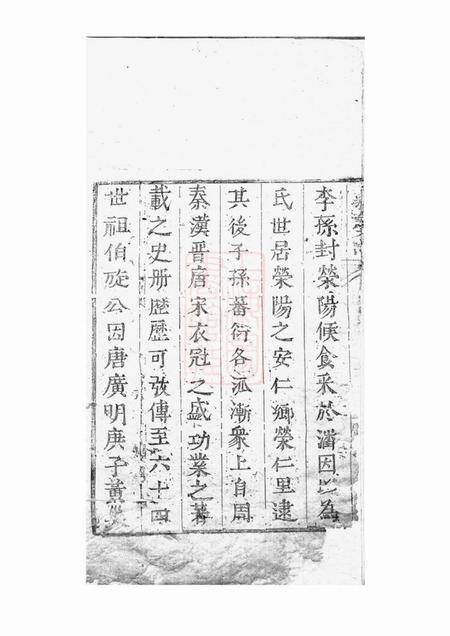 季孫封滎陽侯食采於潘因以為
氏世居滎陽之安仁鄉榮仁里逮
其後子孫蕃衍各派漸衆上自周
秦漢晋唐宋衣冠之盛功業之著
載之史册歷歷可攷傳至六十四
世祖伯旋公因唐廣明庚子黃巢